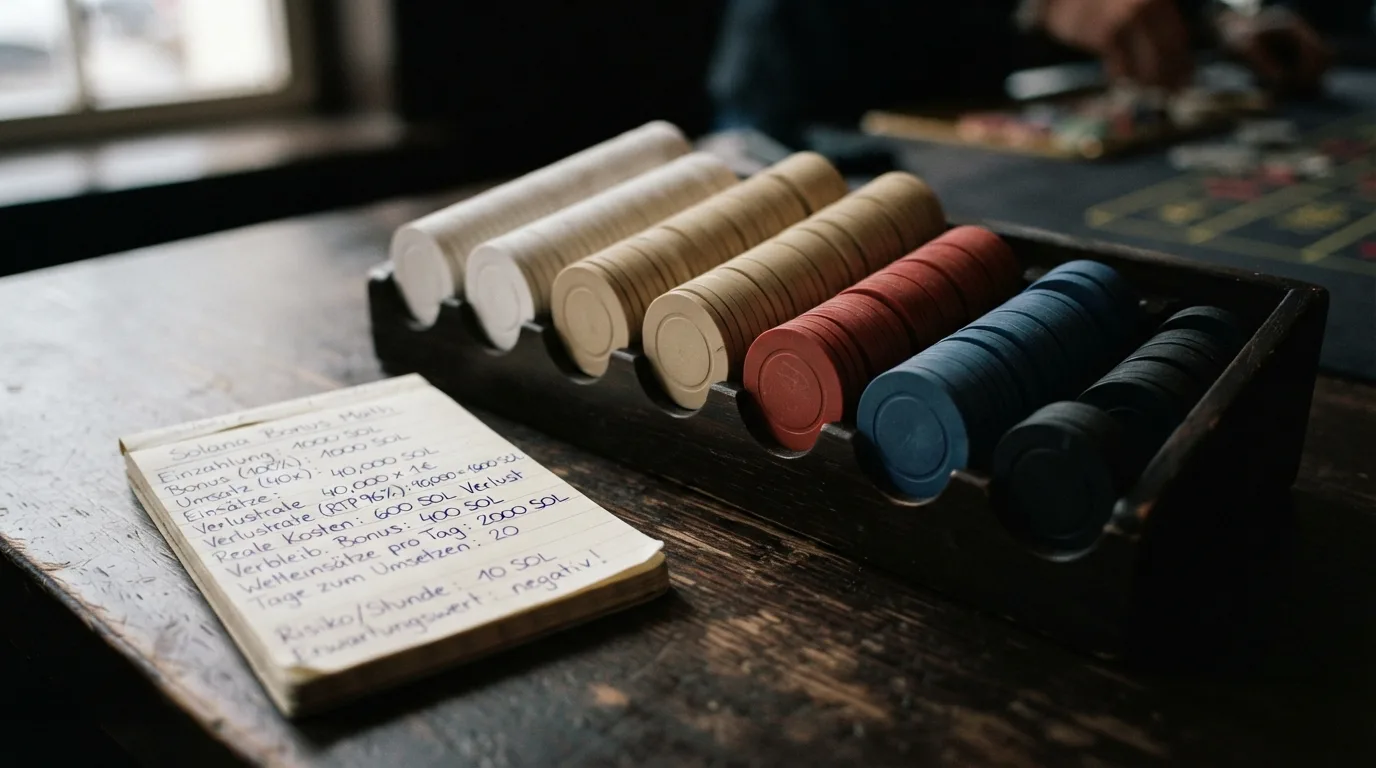 Solana Bonus Math
Einzahlung: 1000 SOL
Bonus (100%): 1000
Umsatz (40x): 40,000 SOL
Einsätze: 40,000 x 1€
Verlustrate (RTP 96%): 40,000 = 1600 SOL
Reale Kosten: 600 SOL Verlust
Verbleib. Bonus: 400 SOL
Wetteinsätze pro Tag: 2000 SOL
Tage zum Umsetzen: 20
Risiko/Stunde: 10 SOL
Erwartungswert: negativ!